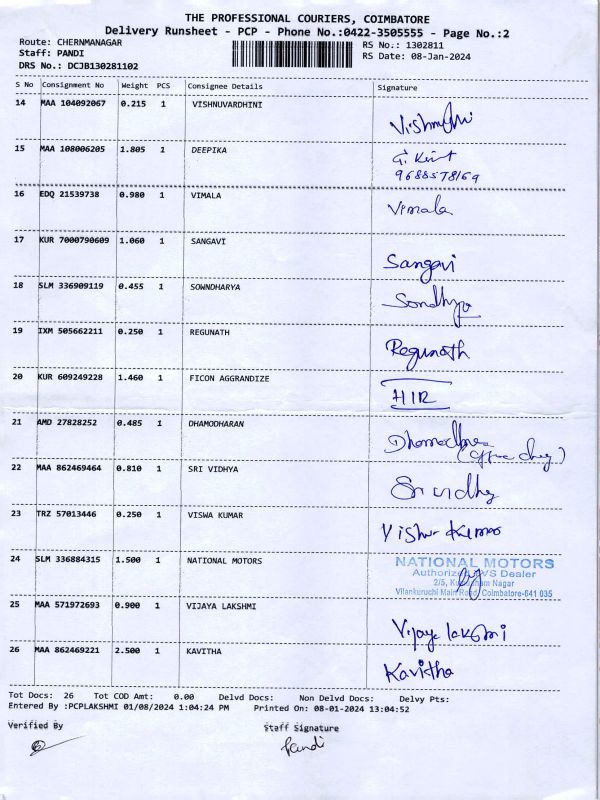 THE PROFESSIONAL COURIERS, COIMBATORE
Delivery Runsheet - PCP - Phone No.:0422-3505555 - Page No.:2
Route: CHERNMANAGAR RS No.: 1302811
Staff: PANDI RS Date: 08-Jan-2024
DRS No.: DCJB130281102
S No Consignment No Weight PCS Consignee Details Signature
14 MAA 104092067 0.215 1 VISHNUVARDHINI
15 MAA 108006205 1.805 1 DEEPIKA
9688578169
16 EDQ 21539738 0.980 1 VIMALA Vimala
17 KUR 7000790609 1.060 1 SANGAVI Sangavi
18 SLM 336909119 0.455 1 SOWNDHARYA Sondhya
19 IXM 505662211 0.250 1 REGUNATH Regunath
20 KUR 609249228 1.460 1 FICON AGGRANDIZE
21 AMD 27828252 0.485 1 DHAMODHARAN
22 MAA 862469464 0.810 1 SRI VIDHYA Sri vidhy
23 TRZ 57013446 0.250 1 VISWA KUMAR
24 SLM 336884315 1.500 1 NATIONAL MOTORS NATIONAL MOTORS
Authorized TVS Dealer
Vilankuruchi Main Road, Coimbatore-641 035
25 MAA 571972693 0.900 1 VIJAYA LAKSHMI Vijaya lakshmi
26 MAA 862469221 2.500 1 KAVITHA Kavitha
Tot Docs: 26 Tot COD Amt: 0.00 Delvd Docs: Non Delvd Docs: Delvy Pts:
Entered By :PCPLAKSHMI 01/08/2024 1:04:24 PM Printed On: 08-01-2024 13:04:52
Verified By Staff Signature
Pandi